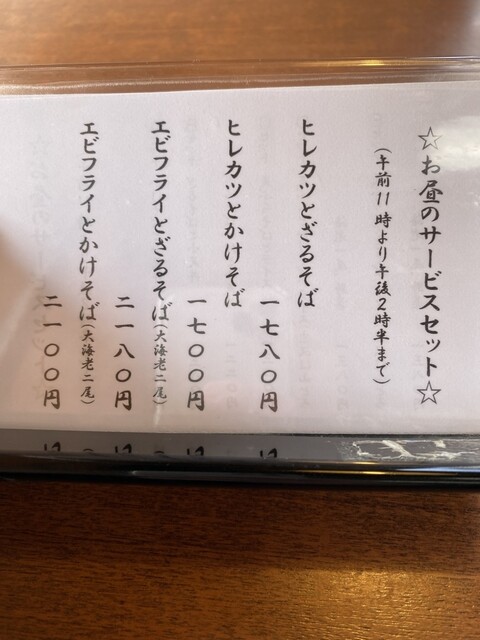 ☆お昼のサービスセット☆
(午前11時より午後2時半まで)
ヒレカツとざるそば
一七八〇円
ヒレカツとかけそば
一七〇〇円
エビフライとざるそば(大海老二尾)
二一八〇円
エビフライとかけそば(大海老二尾)
二一〇〇円